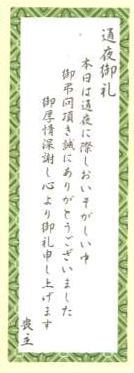 通夜御礼
本日は通夜に際しおいそがしい中
御弔問頂き誠にありがとうございました
御厚情深謝し心より御礼申し上げます
喪主